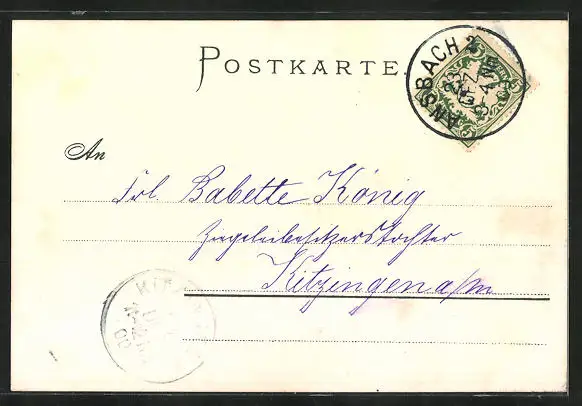 POSTKARTE.
ANSBACH 2
23
An
Frl. Babette König
Ziegeleibesitzerstochter
Kitzingen a/m